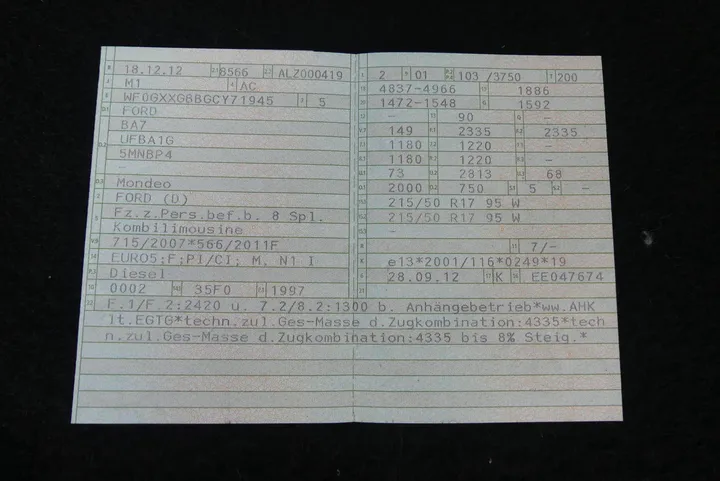 18.12.12 8566 ALZ000419
M1 AC
WF0GXXGBBGCY71945 5
FORD
BA7
UFBA1G
5MNBP4
–
Mondeo
FORD (D)
Fz.z.Pers.bef.b. 8 Spl.
Kombilimousine
715/2007*566/2011F
EURO5;F;PI/CI; M, N1 I
Diesel
0002 35F0 1997
2 01 103 /3750 200
4837-4966 1886
1472-1548 1592
– 90 –
149 2335 2335
1180 1220 –
1180 1220 –
73 2813 68
2000 750 5 –
215/50 R17 95 W
215/50 R17 95 W
–
7/–
e13*2001/116*0249*19
28.09.12 K EE047674
F.1/F.2:2420 u. 7.2/8.2:1300 b. Anhängebetrieb*ww.AHK
lt.EGTG*techn.zul.Ges-Masse d.Zugkombination:4335*tech
n.zul.Ges-Masse d.Zugkombination:4335 bis 8% Steig.*